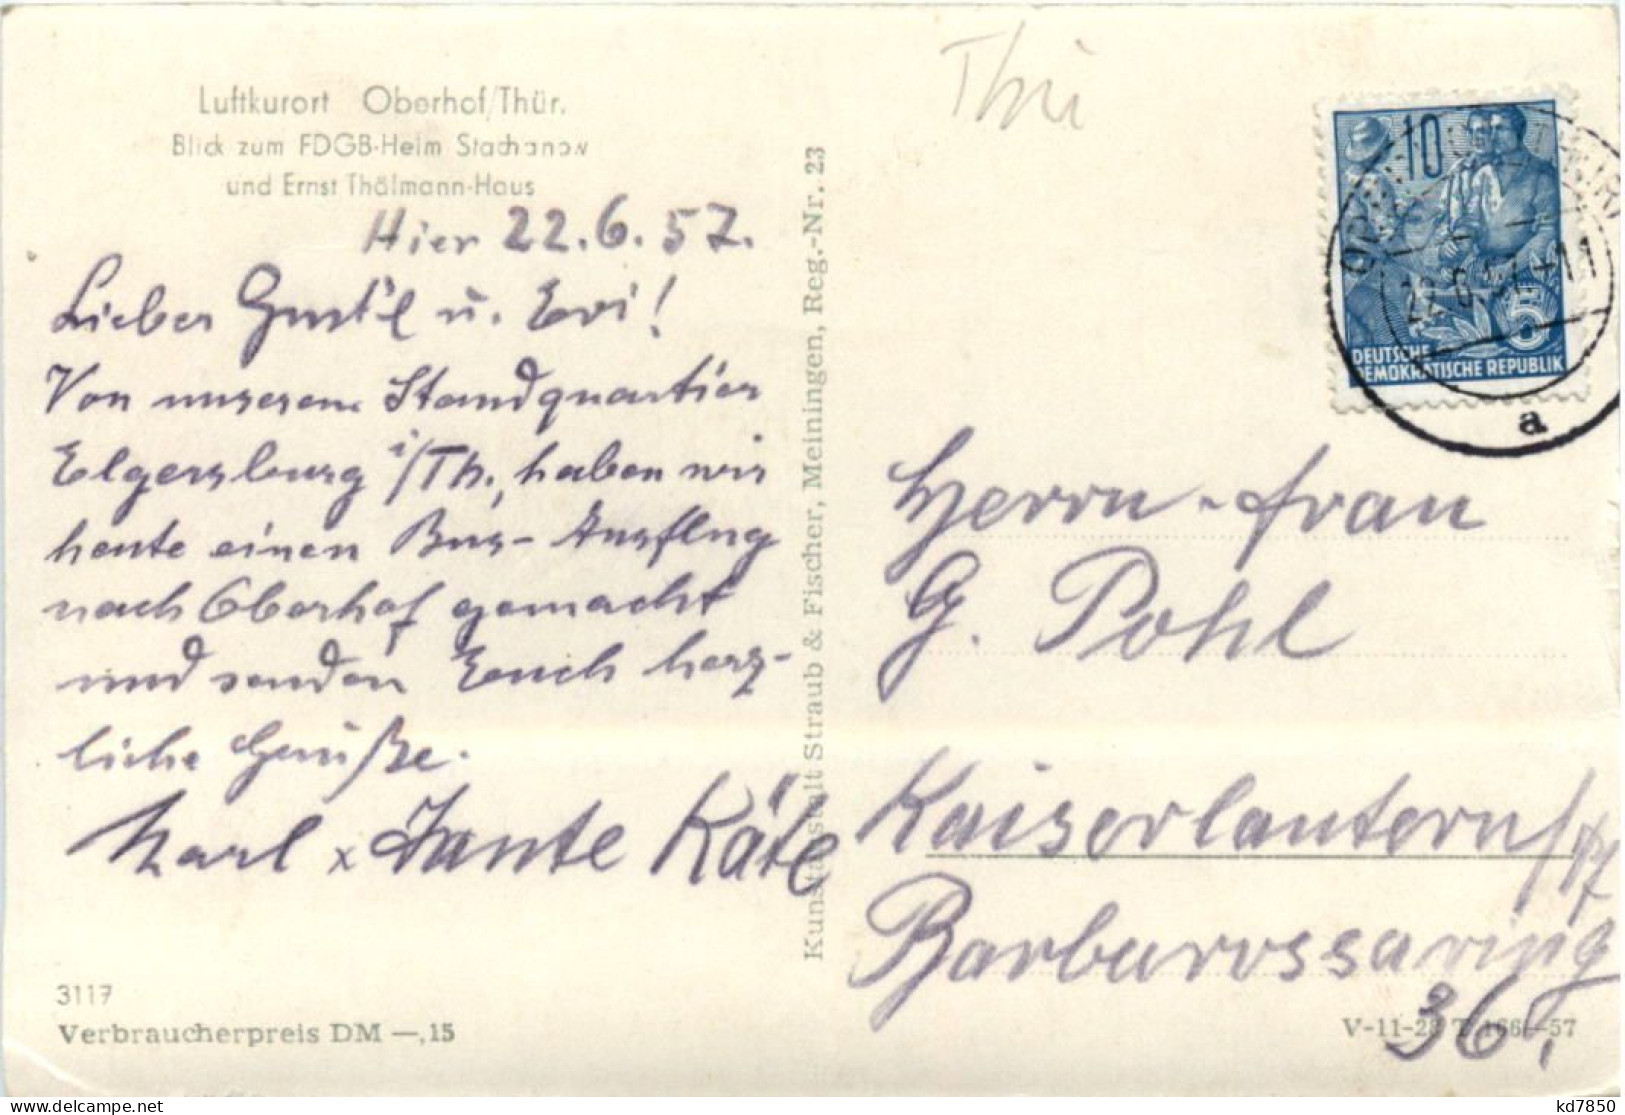 Luftkurort Oberhof/Thür.
Blick zum FDGB-Heim Stachanow
und Ernst Thälmann-Haus
Hier 22.6.57.
Lieber Gust'l u. Evi!
Von unserem Standquartier
Elgersburg i/Th., haben wir
heute einen Bus-Ausflug
nach Oberhof gemacht
und senden Euch herz-
liche Grüße.
Karl x Tante Käte
3117
Verbraucherpreis DM —,15
Kunstanstalt Straub & Fischer, Meiningen, Reg.-Nr. 23
Thü
10
5
DEUTSCHE
DEMOKRATISCHE REPUBLIK
22.6.57.-11
a
Herrn - Frau
G. Pohl
Kaiserlautern/Pf
Barbarossaring
36.
V-11-28 T 166-57
www.delcampe.net
kd7850